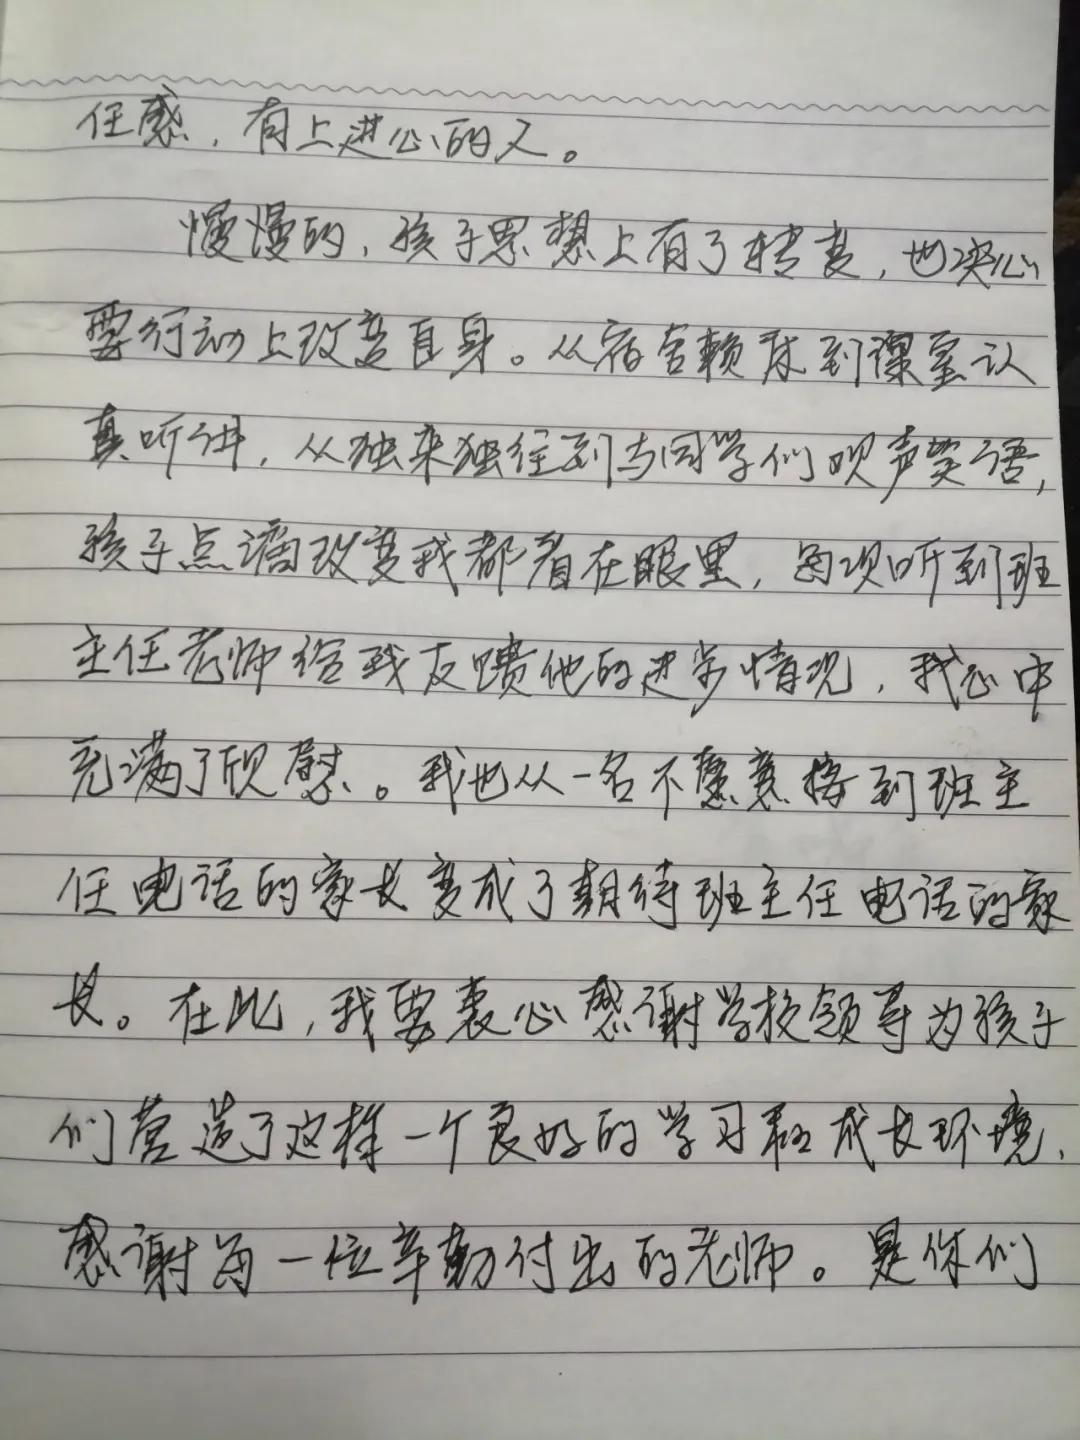 任感，有上进心的人。
慢慢的，孩子思想上有了转变，也决心
要行动上改变自身。从宿舍赖床到课室认
真听讲，从独来独往到与同学们欢声笑语，
孩子点滴改变我都看在眼里，每次听到班
主任老师给我反馈他的进步情况，我心中
充满了欣慰。我也从一名不愿意接到班主
任电话的家长变成了期待班主任电话的家
长。在此，我要衷心感谢学校领导为孩子
们营造了这样一个良好的学习和成长环境，
感谢每一位辛勤付出的老师。是你们